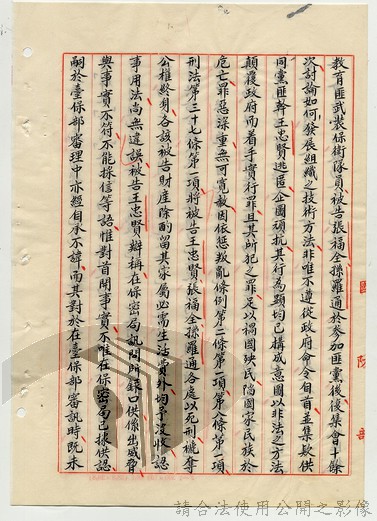 教育匪武裝保衛隊員被告張福全孫羅通於參加匪黨後復集會十餘
次討論如何發展組織之技術方法非唯不遵從政府命令自首並集款供
同黨匪幹王忠賢逃匿企圖頑抗其行為顯均已構成意圖以非法之方法
顛覆政府而着手實行罪且其所犯之罪足以禍國殃民陷國家民族於
危亡罪惡深重無可寬宥因依懲叛亂條例第二條第一項第八條第一項
刑法第三十七條第一項將被告王忠賢張福全孫羅通各處以死刑褫奪
公權終身各該被告財產除酌留其家屬必需生活費外均予沒收認
事用法尚無違誤被告王忠賢辯稱在保密局訊問所錄口供係出威脅
與事實不符不能採信等語惟對首開事實不唯在保密局已據供認
嗣於臺保部審理中亦經自承不諱而其對於在臺保部審訊時既未
國防部
請合法使用公開之影像